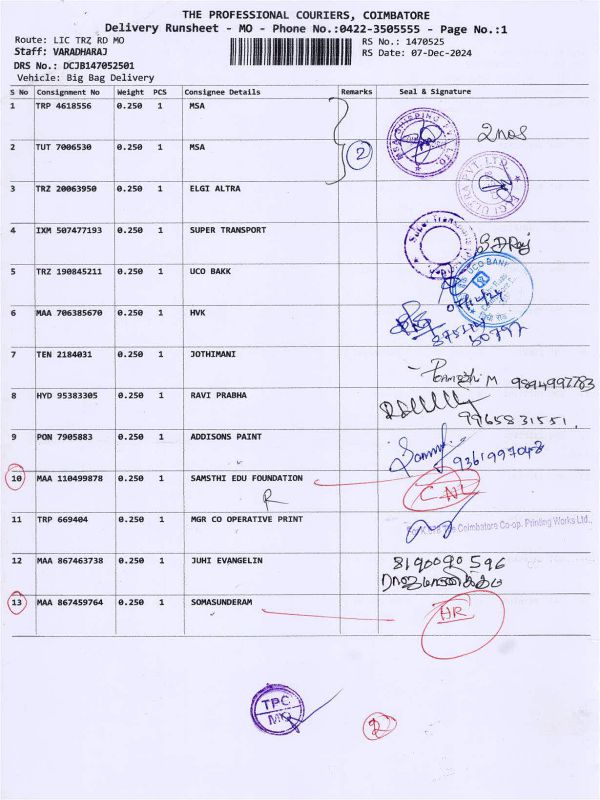 THE PROFESSIONAL COURIERS, COIMBATORE
Delivery Runsheet - MO - Phone No.:0422-3505555 - Page No.:1
Route: LIC TRZ RD MO
RS No.: 1470525
Staff: VARADHARAJ
RS Date: 07-Dec-2024
DRS No.: DCJB147052501
Vehicle: Big Bag Delivery
S No Consignment No Weight PCS Consignee Details Remarks Seal & Signature
1 TRP 4618556 0.250 1 MSA
2nos
2 TUT 7006530 0.250 1 MSA
2
3 TRZ 20063950 0.250 1 ELGI ALTRA
4 IXM 507477193 0.250 1 SUPER TRANSPORT
5 TRZ 190845211 0.250 1 UCO BAKK
UCO BANK
6 MAA 706385670 0.250 1 HVK
7 TEN 2184031 0.250 1 JOTHIMANI
9894997783
8 HYD 95383305 0.250 1 RAVI PRABHA
9965831551.
9 PON 7905883 0.250 1 ADDISONS PAINT
9361997048
10 MAA 110499878 0.250 1 SAMSTHI EDU FOUNDATION
R
CNL
11 TRP 669404 0.250 1 MGR CO OPERATIVE PRINT
The Coimbatore Co-op. Printing Works Ltd.,
12 MAA 867463738 0.250 1 JUHI EVANGELIN
8190090596
13 MAA 867459764 0.250 1 SOMASUNDERAM
HR
TPC
MO
2